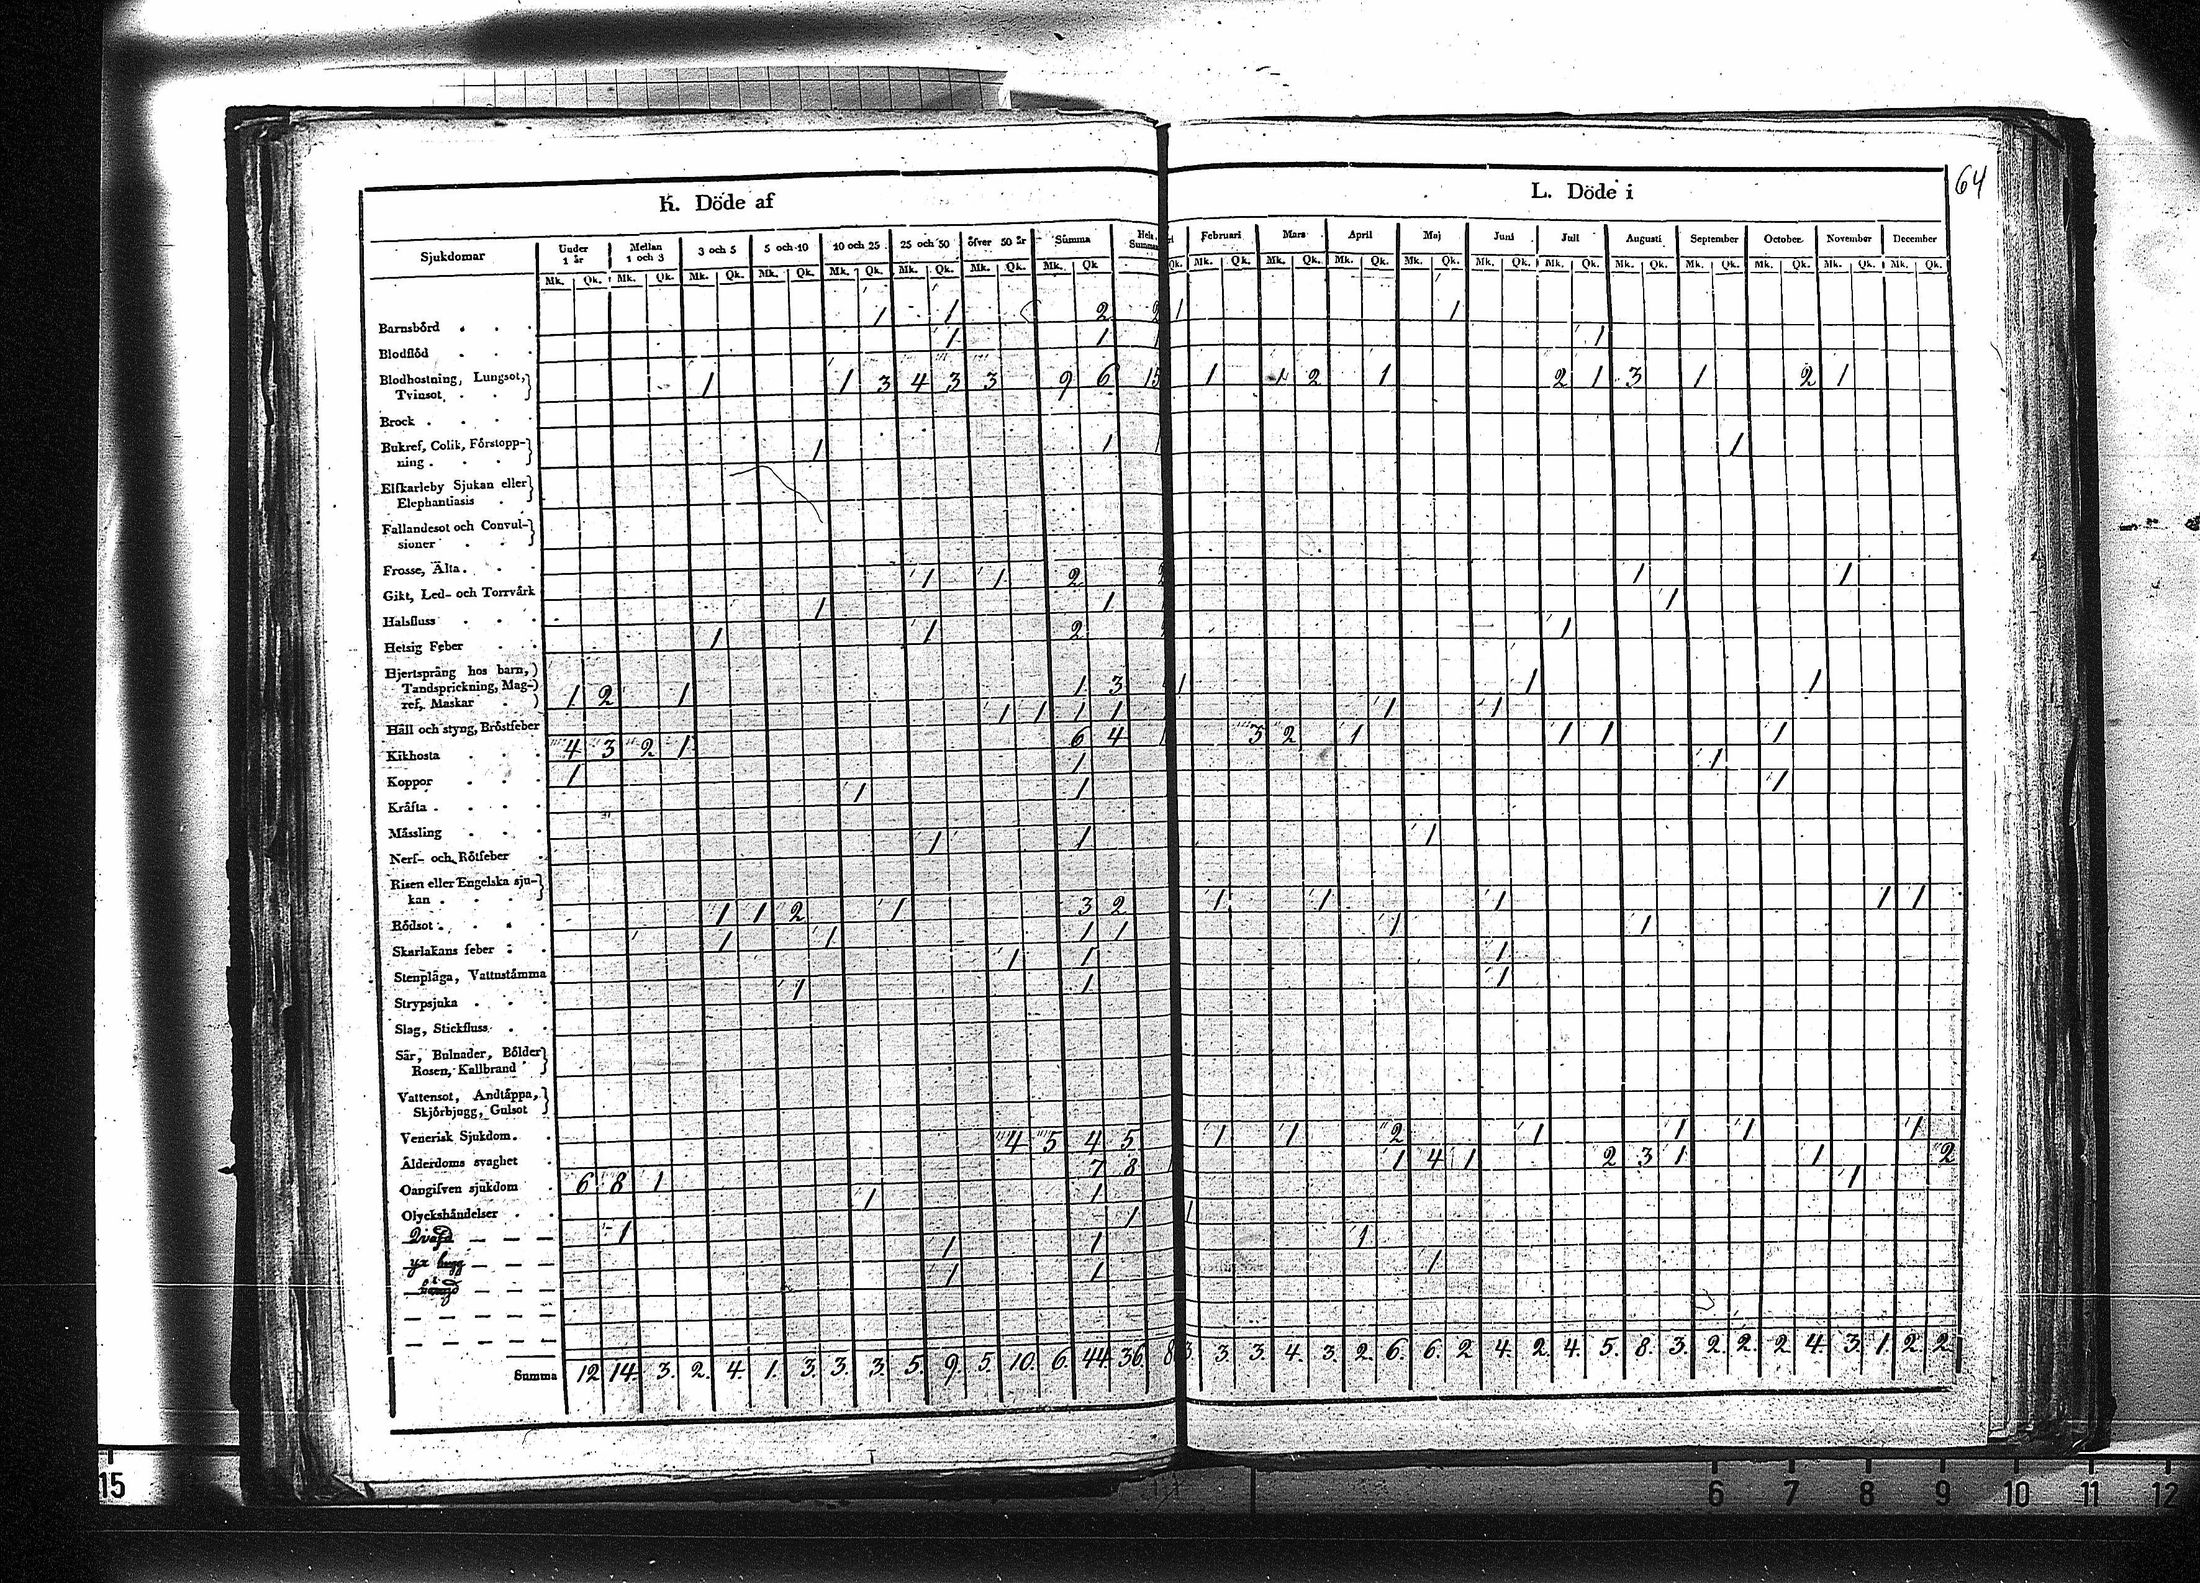 64
K. Döde af
L. Döde i
Sjukdomar Under 1 år Mellan 1 och 3 3 och 5 5 och 10 10 och 25 25 och 50 öfver 50 år Summa Hela Summan Februari Mars April Maj Juni Juli Augusti September October November December
Mk. Qk. Mk. Qk. Mk. Qk. Mk. Qk. Mk. Qk. Mk. Qk. Mk. Qk. Mk. Qk Qk. Mk. Qk. Mk. Qk. Mk. Qk. Mk. Qk. Mk. Qk. Mk. Qk. Mk. Qk. Mk. Qk. Mk. Qk. Mk. Qk. Mk. Qk.
Barnsbörd . . . 1 1 2 2 1 1
Blodflöd . . . 1 1 1 1
Blodhostning, Lungsot,
Tvinsot, . . 1 1 3 4 3 3 9 6 15 1 1 2 1 2 1 3 1 2 1
Brock . . . .
Bukref, Colik, Förstopp-
ning . . . 1 1 1 1
Elfkarleby Sjukan eller
Elephantiasis .
Fallandesot och Convul-
sioner . .
Frosse, Älta . . .
Gikt, Led- och Torrvärk 1 1 2 2 1 1
Halsfluss . . . 1 1 1
Hetsig Feber . . 1 1 2 1
Hjertsprång hos barn,
Tandsprickning, Mag-
ref, Maskar . 1 2 1 1 3 1 1 1
Håll och styng, Bröstfeber 1 1 1 1 1 1
Kikhosta . . . 4 3 2 1 6 4 1 3 2 1 1 1 1
Koppor . . . 1 1 1
Kräfta . . . . 1 1 1
Mässling . . .
Nerf- och Rötfeber . 1 1 1
Risen eller Engelska sju-
kan . . .
Rödsot . . . . 1 1 2 1 3 2 1 1 1 1 1
Skarlakans feber . . 1 1 1 1 1 1
Stenplåga, Vattustämma 1 1 1
Strypsjuka . . . 1 1 1
Slag, Stickfluss . .
Sår, Bulnader, Bölder
Rosen, Kallbrand
Vattensot, Andtäppa,
Skjörbjugg, Gulsot
Venerisk Sjukdom . .
Ålderdoms svaghet . 4 5 4 5 1 1 2 1 1 1 1
Oangifven sjukdom . 6 8 1 7 8 1 4 1 2 3 1 1 2
Olyckshändelser . . 1 1 1
Qväfd 1 1 1
yx hugg 1 1 1
1 1 1
Summa 12 14. 3. 2. 4. 1. 3. 3. 3. 5. 9. 5. 10. 6. 44. 36. 8 3. 3. 3. 4. 3. 2. 6. 6. 2 4. 2. 4. 5. 8. 3. 2. 2. 2 4. 3. 1. 2. 2.
15
6 7 8 9 10 11 12